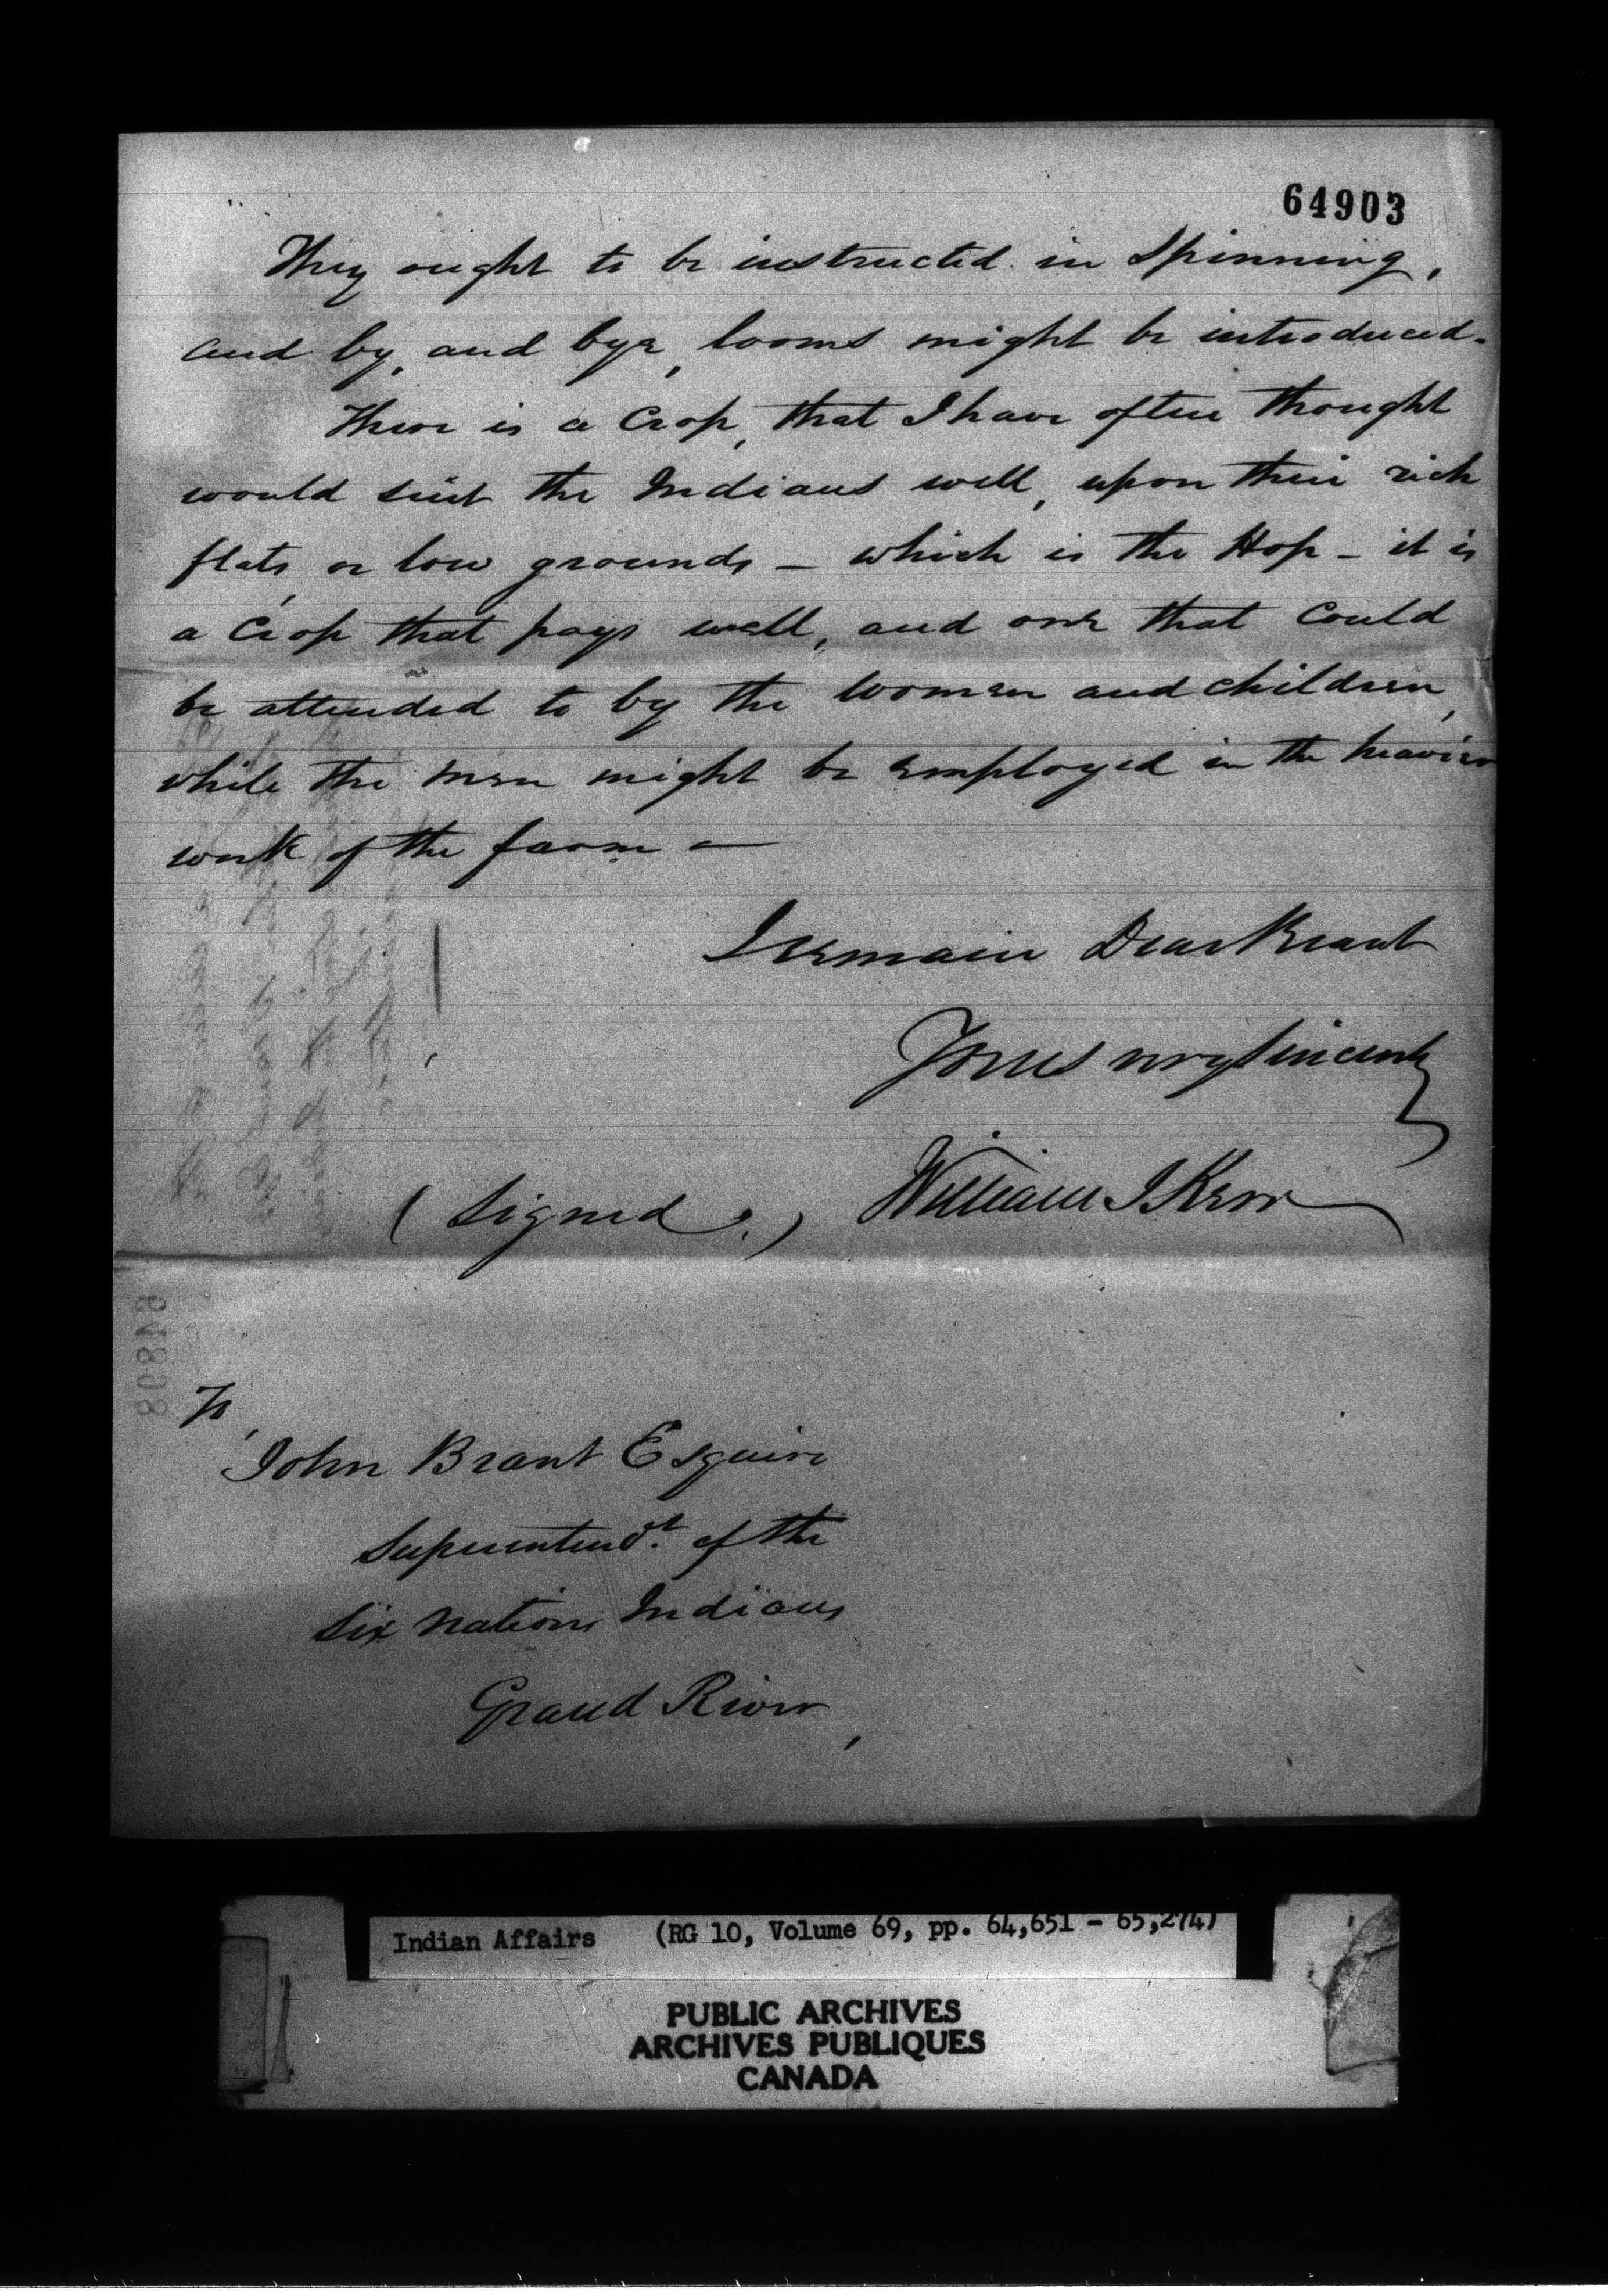 64903
They ought to be instructed in Spinning,
and by, and bye, looms might be introduced.
There is a Crop, that I have often thought
would suit the Indians well, upon their rich
flats, or low grounds — which is the Hop — it is
a Crop that pays well, and one that could
be attended to by the women and children,
while the men might be employed in the heavier
work of the farm —
I remain Dear Brant
Yours very sincerely
(Signed.) William J Kerr
To,
John Brant Esquire
Superintendt. of the
Six Nations Indians
Grand River,
Indian Affairs (RG 10, Volume 69, pp. 64,651 - 65,274)
PUBLIC ARCHIVES
ARCHIVES PUBLIQUES
CANADA